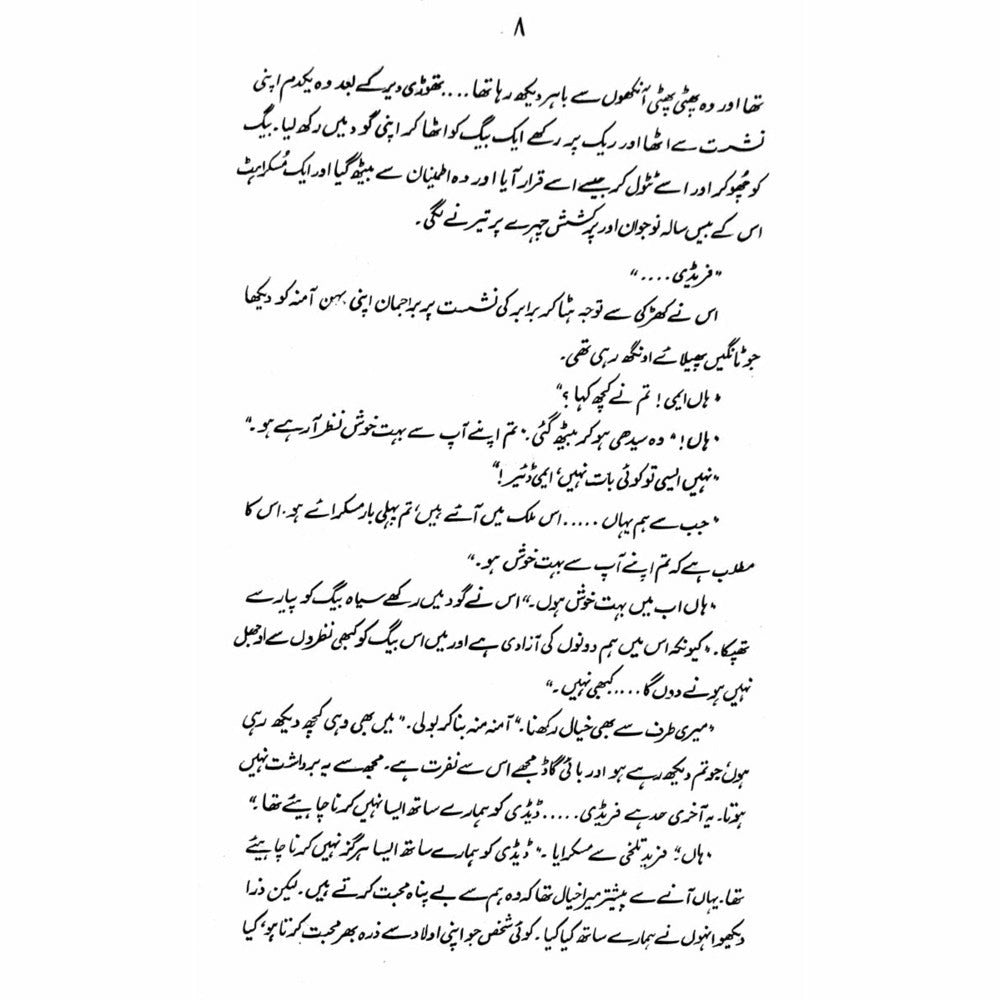 ۸
تھا اور وہ پھٹی پھٹی آنکھوں سے باہر دیکھ رہا تھا .... تھوڑی دیر کے بعد وہ یکدم اپنی
نشست سے اٹھا اور ریک پر رکھے ایک بیگ کو اٹھا کر اپنی گود میں رکھ لیا۔ بیگ
کو چھو کر اور اسے ٹٹول کر جیسے اسے قرار آیا اور وہ اطمینان سے بیٹھ گیا اور ایک مُسکراہٹ
اس کے بیس سالہ نوجوان اور پرکشش چہرے پر تیرنے لگی۔
"فریڈی ...."
اس نے کھڑکی سے توجہ ہٹا کر برابر کی نشست پر براجمان اپنی بہن آمنہ کو دیکھا
جو ٹانگیں پھیلائے اونگھ رہی تھی۔
"ہاں ایمی! تم نے کچھ کہا؟"
"ہاں!" وہ سیدھی ہو کر بیٹھ گئی۔ "تم اپنے آپ سے بہت خوش نظر آرہے ہو۔"
"نہیں ایسی تو کوئی بات نہیں، ایمی ڈئیر!"
"جب سے ہم یہاں ..... اس ملک میں آئے ہیں، تم پہلی بار مسکرائے ہو۔ اس کا
مطلب ہے کہ تم اپنے آپ سے بہت خوش ہو۔"
"ہاں اب میں بہت خوش ہوں۔" اس نے گود میں رکھے سیاہ بیگ کو پیار سے
تھپکا۔ "کیونکہ اس میں ہم دونوں کی آزادی ہے اور میں اس بیگ کو کبھی نظروں سے اوجھل
نہیں ہونے دوں گا .... کبھی نہیں۔"
"میری طرف سے بھی خیال رکھنا۔" آمنہ منہ بنا کر بولی۔ "میں بھی وہی کچھ دیکھ رہی
ہوں جو تم دیکھ رہے ہو اور بائی گاڈ مجھے اس سے نفرت ہے۔ مجھ سے یہ برداشت نہیں
ہوتا۔ یہ آخری حد ہے فریڈی ..... ڈیڈی کو ہمارے ساتھ ایسا نہیں کرنا چاہیئے تھا۔"
"ہاں" فرید تلخی سے مسکرایا۔ "ڈیڈی کو ہمارے ساتھ ایسا ہرگز نہیں کرنا چاہیئے
تھا۔ یہاں آنے سے پیشتر میرا خیال تھا کہ وہ ہم سے بے پناہ محبت کرتے ہیں۔ لیکن ذرا
دیکھو انہوں نے ہمارے ساتھ کیا کیا۔ کوئی شخص جو اپنی اولاد سے ذرہ بھر محبت کرتا ہو، کیا